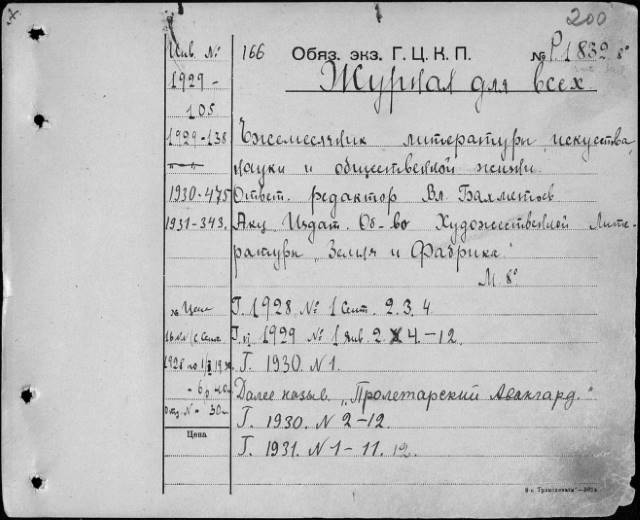 200
Инв. №
166 Обяз. экз. Г. Ц. К. П. № Р1832 8°
1929 -
Журнал для всех
105
1929-138 Ежемесячник литературы, искусства,
науки и общественной жизни.
1930-475 Ответ. редактор Вл. Бахметьев
1931-343. Акц. Издат. Об-во Художественной Лите-
ратуры "Земля и Фабрика."
М 8°
Цена Г. 1928 № 1 Сент. 2. 3. 4
Г. 1929 № 1 янв. 2 4.-12.
1928 по
Г. 1930. N 1.
- 6 р.
Далее назыв. "Пролетарский Авангард."
N - 30к
Г. 1930. N 2-12.
Цена
Г. 1931. N 1-11. 12.